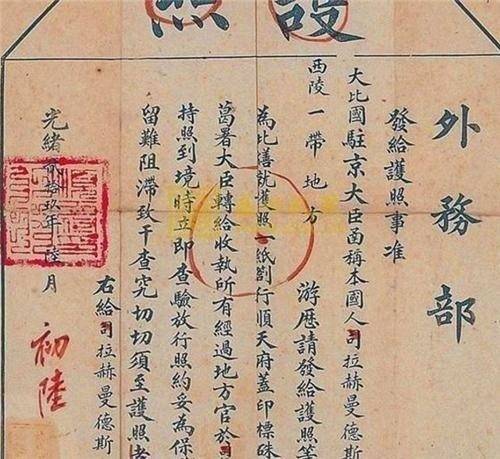 護照
外務部
發給護照事准
大比國駐京大臣函稱本國人司拉赫曼德斯
西陵一帶地方 游歷請發給護照等
為此繕就護照一紙劄行順天府蓋印標硃
葛署大臣轉給收執所有經過地方官於司
持照到境時立即查驗放行照約妥為保
留難阻滯致干查究切切須至護照者
右給司拉赫曼德斯
光緒貳拾玖年 陸月
初陸